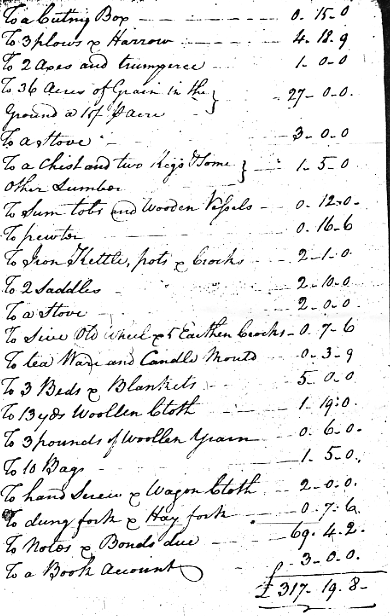 To a Cuting Box 0. 15. 0
To 3 plows & Harrow 4. 18. 9
To 2 Axes and trumperee 1. 0. 0
To 36 Acres of Grain in the
Ground a 15/ p acre } 27. 0. 0
To a Stove 3. 0. 0
To a Chist and two Keg's & Some
Other Lumber } 1. 5. 0
To Sum tobs and Wooden Vessels 0. 12. 0.
To pewter 0. 16. 6
To Iron Kettle, pots & Crocks 2. 1. 0
To 2 Saddles 2. 10. 0
To a Stove 2. 0. 0
To Sive Old Wheel & 5 Earthen Crocks 0. 7. 6
To tea Ware and Candle Mould 0. 3. 9
To 3 Beds & Blankets 5. 0. 0
To 13 yds Woollen Cloth 1. 19. 0.
To 3 pounds of Woollen Yearn 0. 6. 0.
To 10 Bags 1. 5. 0.
To hand Screw & Wagon Cloth 2. 0. 0
To dung fork & Hay fork 0. 7. 6.
To Notes & Bonds due 69. 4. 2.
To a Book Account 3. 0. 0.
£ 317. 19. 8